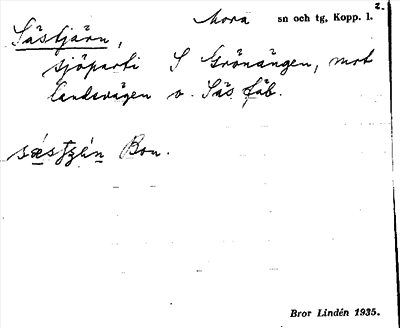 Mora sn och tg, Kopp. l. 2.
Sästjärn,
sjöparti S Grönängen, mot
landsvägen o. Säs fäb.
Bon.
Bror Lindén 1935.